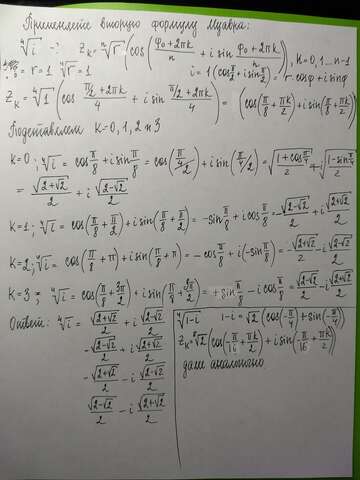 Применяете вторую формулу Муавра:
∜i -? Z_k = ⁿ√r (cos (φ₀+2πk)/n + i sin (φ₀+2πk)/n), k=0,1...n-1
= r = 1 ∜r = 1 i = 1 (cos π/2 + i sin π/2) = r cosφ + i sinφ
Z_k = ∜1 (cos (π/2+2πk)/4 + i sin (π/2+2πk)/4) = (cos(π/8 + πk/2) + i sin(π/8 + πk/2))
Подставляем k=0,1,2 и 3
k=0; ∜i = cos π/8 + i sin π/8 = cos((π/4)/2) + i sin((π/4)/2) = √((1+cos π/4)/2) + i√((1-sin π/4)/2)
= √(2+√2)/2 + i √(2-√2)/2
k=1; ∜i = cos(π/8 + π/2) + i sin(π/8 + π/2) = -sin π/8 + i cos π/8 = -√(2-√2)/2 + i √(2+√2)/2
k=2; ∜i = cos(π/8 + π) + i sin(π/8 + π) = -cos π/8 + i(-sin π/8) = -√(2+√2)/2 - i √(2-√2)/2
k=3; ∜i = cos(π/8 + 3π/2) + i sin(π/8 + 3π/2) = + sin π/8 - i cos π/8 = √(2-√2)/2 - i √(2+√2)/2
Ответ: ∜i = √(2+√2)/2 + i √(2-√2)/2
-√(2-√2)/2 + i √(2+√2)/2
-√(2+√2)/2 - i √(2-√2)/2
√(2-√2)/2 - i √(2+√2)/2
∜(1-i) 1-i = √2 (cos(-π/4) + sin(-π/4))
Z_k = ⁸√2 (cos(-π/16 + πk/2) + i sin(-π/16 + πk/2))
далее аналогично